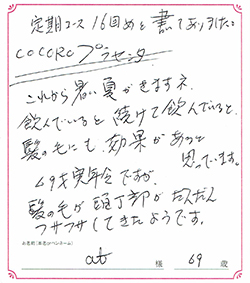 定期コース16回めと書てありました!
COCOROプラセンタ
これから暑い夏がきますネ
飲んでいると 続けて飲んでいると、
髪の毛にも効果があると
思っています。
69才実年令ですが、
髪の毛が頭丁部がだんだん
フサフサしてきたようです。
お名前(本名orペンネーム)
at 様 69 歳